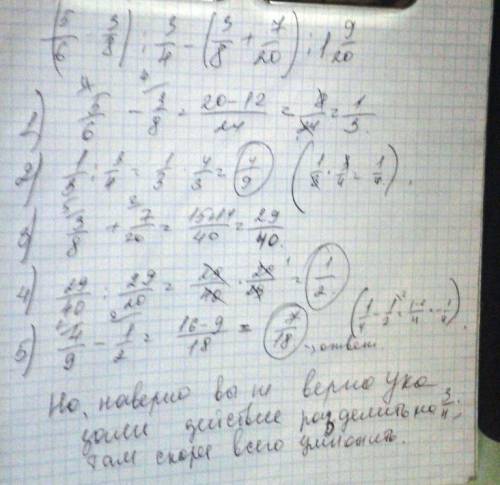 (5/6 - 3/8) : 3/4 - (3/8 + 7/20) : 1 9/20
1) 5/6 - 3/8 = 20-12/24 = 8/24 = 1/3.
2) 1/3 : 3/4 = 1/3 · 4/3 = 4/9 (1/3 · 3/4 = 1/4).
3) 3/8 + 7/20 = 15+14/40 = 29/40.
4) 29/40 : 29/20 = 29/40 · 20/29 = 1/2
5) 4/9 - 1/2 = 16-9/18 = 7/18 - ответ (1/4 - 1/2 = 1-2/4 = -1/4).
Но, наверно вы не верно ука
зали действие разделить на 3/4,
там скорее всего умножить.